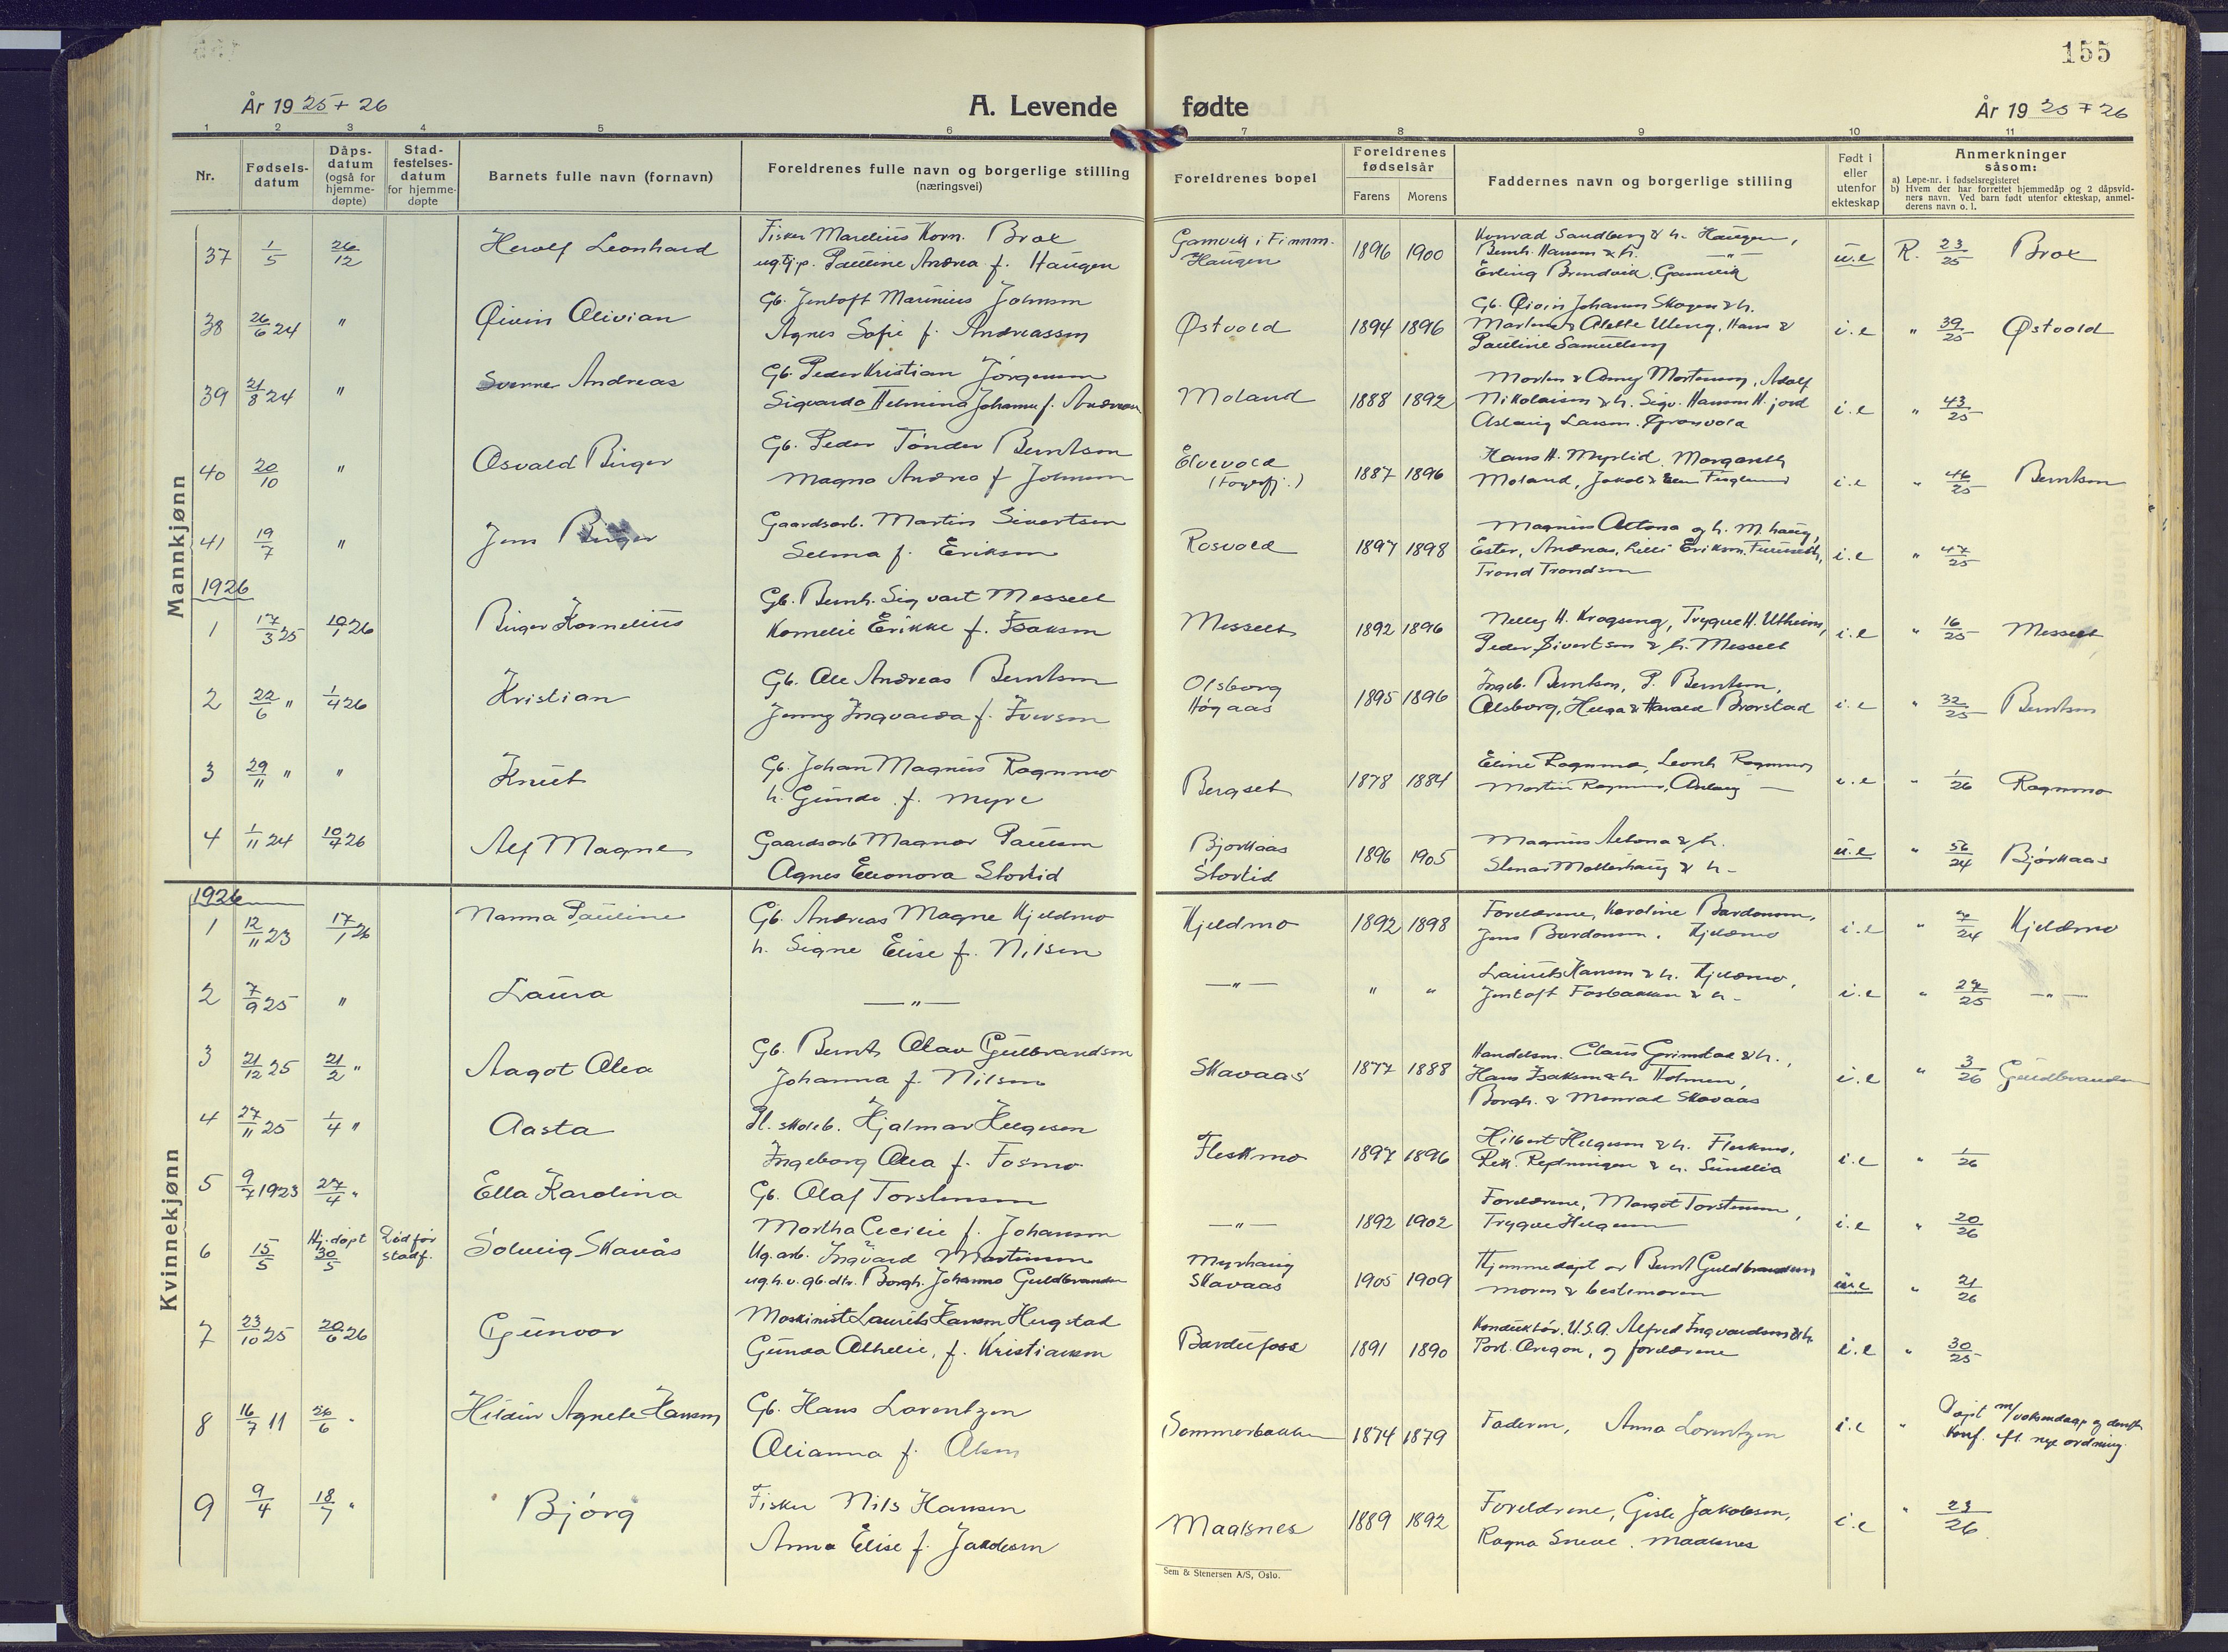 155
År 1925 + 26
A. Levende fødte
År 1925 + 26
1 2 3 4 5 6 7 8 9 10 11
Nr.
Fødsels-
datum
Dåps-
datum
(også for
hjemme-
døpte)
Stad-
festelses-
datum
for hjemme-
døpte
Barnets fulle navn (fornavn)
Foreldrenes fulle navn og borgerlige stilling
(næringsvei)
Foreldrenes bopel
Foreldrenes
fødselsår
Farens Morens
Faddernes navn og borgerlige stilling
Født i
eller
utenfor
ekteskap
Anmerkninger
såsom:
a) Løpe-nr. i fødselsregisteret
b) Hvem der har forrettet hjemmedåp og 2 dåpsvid-
ners navn. Ved barn født utenfor ekteskap, anmel-
derens navn o. l.
Mannkjønn
37 1/5 26/12 Herolf Leonhard
Fisker Marelius Korn. Brox
ug.tj.p. Pauline Andrea f. Haugen
Gamvik i Finnm.
Haugen
1896 1900
Konrad Sandberg & h. Haugen,
Bernh. Hansen & h. — " —
Erling Brendvik, Gamvik
u.e R. 23/25 Brox
38 26/6 24 " Øivin Olivian
Gb. Jentoft Marinius Johnsen
Agnes Sofie f. Andreassen
Østvold
1894 1896
Gb. Øivin Johansen Skogen & h.
Martens & Alette Uleng, Hans &
Pauline Samuelsen
i.e " 39/25 Østvold
39 21/8 24 " Sverre Andreas
Gb. Peder Kristian Jørgensen
Sigvarda Helmina Johanna f. Andreassen
Moland
1888 1892
Morten & Anny Mortensen, Adolf
Nikolaisen & h. Sigv. Hansen H.jord
Aslaug Larsen. Grønvold
i.e " 43/25
40 20/10 " Osvald Birger
Gb. Peder Tønder Berntsen
Magna Andrea f. Johnsen
Elvevold
1887 1896
Hans H. Myrlid, Margareth
Moland, Jakob &
i.e " 46/25 Berntsen
41 19/7 " Jens Birger
Gaardsarb. Martin Sivertsen
Selma f. Eriksen
Rosvold
1897 1898
Magnus Altona og h. M.haug,
Ester, Andreas, Lilli Eriksen,
Trond Trondsen
i.e " 47/25
1926
1 17/3 25 10/1 26 Birger Kornelius
Gb. Bernh. Sigvart Messelt
Kornelie Erikke f. Isaksen
Messelt
1892 1896
Nelly H. Krogseng, Trygve H. Utheim,
Peder Sivertsen & h. Messelt
i.e " 16/25 Messelt
2 22/6 " 1/4 26 Kristian
Gb. Ole Andreas Berntsen
Jenny Ingvarda f. Iversen
Olsborg
Høgaas
1895 1896
Ingeb. Berntsen, P. Berntsen,
Olsborg, Helga & Harald Brorstad
i.e " 32/25 Berntsen
3 29/11 " " Knut
Gb. Johan Magnus Rognmo
h. Gunda f. Myre
Bergset
1878 1884
Eline Rognmo, Leonh Rognmo,
Martin Rognmo, Aslaug —
i.e " 1/26 Rognmo
4 1/11 24 10/4 26 Alf Magne
Gaardsarb Magnor Paulsen
Agnes Eleonora Storlid
Bjørkaas
Storlid
1896 1905
Magnus Altona & h.
Stenar Mollerhaug & h —
u.e " 56/24 Bjørkaas
Kvinnekjønn
1926
1 12/11 23 17/1 26 Nanna Pauline
Gb. Andreas Magne Kjeldmo
h. Signe Elise f. Nilsen
Kjeldmo
1892 1898
Foreldrene, Karoline Bardonsen,
Jens Bardonsen. Kjeldmo
i.e " 4/24 Kjeldmo
2 7/9 25 " Laura
— " —
— " —
" "
Laurits Hansen & h. Kjeldmo,
Jentoft Fosbakken & h —
i.e " 24/25 — " —
3 21/12 25 21/2 " Aagot Alea
Gb. Bernt Olav Gulbrandsen
Johanna f. Nilsen
Skavaas
1877 1888
Handelsm. Claus Grimstad & h.,
Hans Isaksen & h Holmen,
Borgh. & Monrad Skavaas
i.e " 3/26 Guldbrandsen
4 27/11 25 1/4 " Aasta
Hjalmar Helgesen
Ingeborg Alea f. Fosmo
Fleskmo
1897 1896
Hilbert Helgesen & h. Fleskmo,
& h. Sundlia
i.e " 1/26
5 9/7 1923 27/4 " Ella Karolina
Gb. Olaf Torstensen
Martha Cecilie f. Johansen
— " —
1892 1902
Foreldrene, Margot Torstensen,
Trygve Helgesen
i.e " 20/26
6 15/5 Hj.døpt 30/5 Død før stadf. Solveig Skavås
Ug. arb. Ingvard Martinsen
ug.h.v. gb.dtr. Borgh. Johanna Guldbrandsen
Myrhaug
Skavaas
1905 1909
Hjemmedøpt av Bernt Guldbrandsen
moren & bestemoren
u.e " 21/26
7 23/10 25 20/6 26 Gunvor
Maskinist Laurits Hansen Hegstad
Gunda Athelie, f. Kristiansen
Bardufoss
1891 1890
Konduktør. U.S.A. Alfred Ingvardsen & h.
Port. Oregon, og foreldrene
i.e " 30/25
8 16/7 11 26/6 " Hildur Agnete Hansen
Gb. Hans Lorentzen
Olianna f. Olsen
Sommerbakken
1874 1879
Faderen, Anna Lorentzen
i.e " Døpt m/voksendaap og derefter
konf. eft. nye ordning.
9 9/4 18/7 " Bjørg
Fisker Nils Hansen
Anna Elise f. Jakobsen
Maalsnes
1889 1892
Foreldrene, Gisle Jakobsen,
Ragna Sneve. Maalsnes
i.e " 23/26
Sem & Stenersen A/S, Oslo.